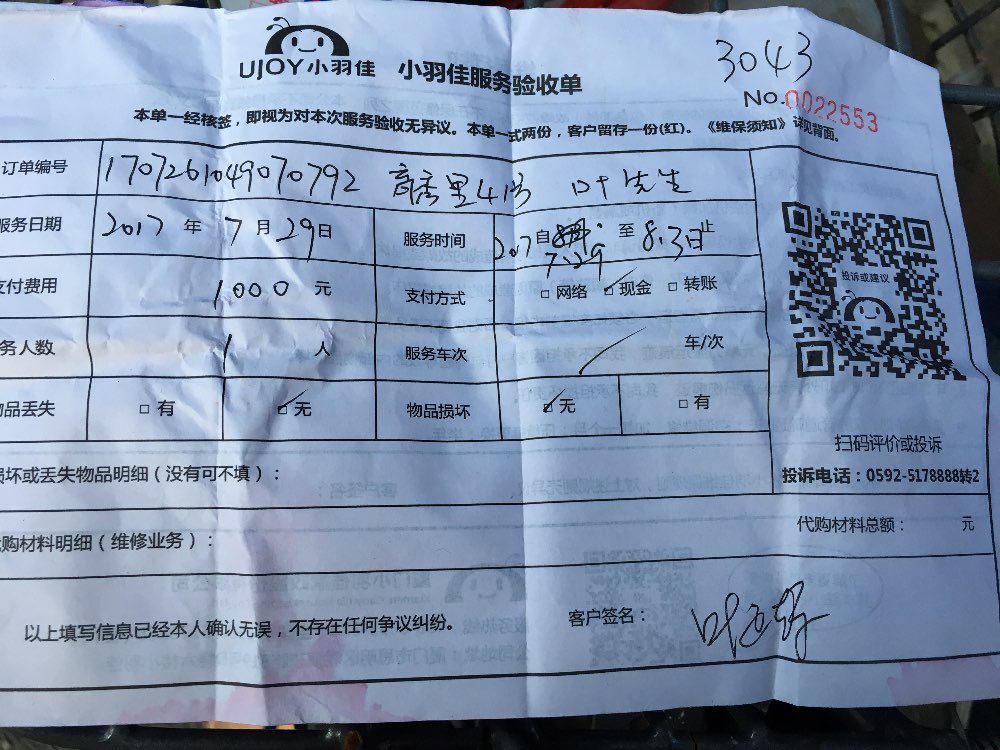 UJOY小羽佳 小羽佳服务验收单
3043
No.0022553
本单一经核签，即视为对本次服务验收无异议。本单一式两份，客户留存一份(红)。《维保须知》详见背面。
订单编号 1707261049070792 高秀里41号 叶先生
服务日期 2017 年 7 月 29 日 服务时间 2017 自 7.29 至 8.3日止
支付费用 1000 元 支付方式 □网络 ☑现金 □转账
务人数 1 人 服务车次 车/次
品丢失 □有 ☑无 物品损坏 ☑无 □有
投诉或建议
扫码评价或投诉
投诉电话：0592-5178888转2
损坏或丢失物品明细（没有可不填）：
代购材料总额： 元
购材料明细（维修业务）：
以上填写信息已经本人确认无误，不存在任何争议纠纷。
客户签名：